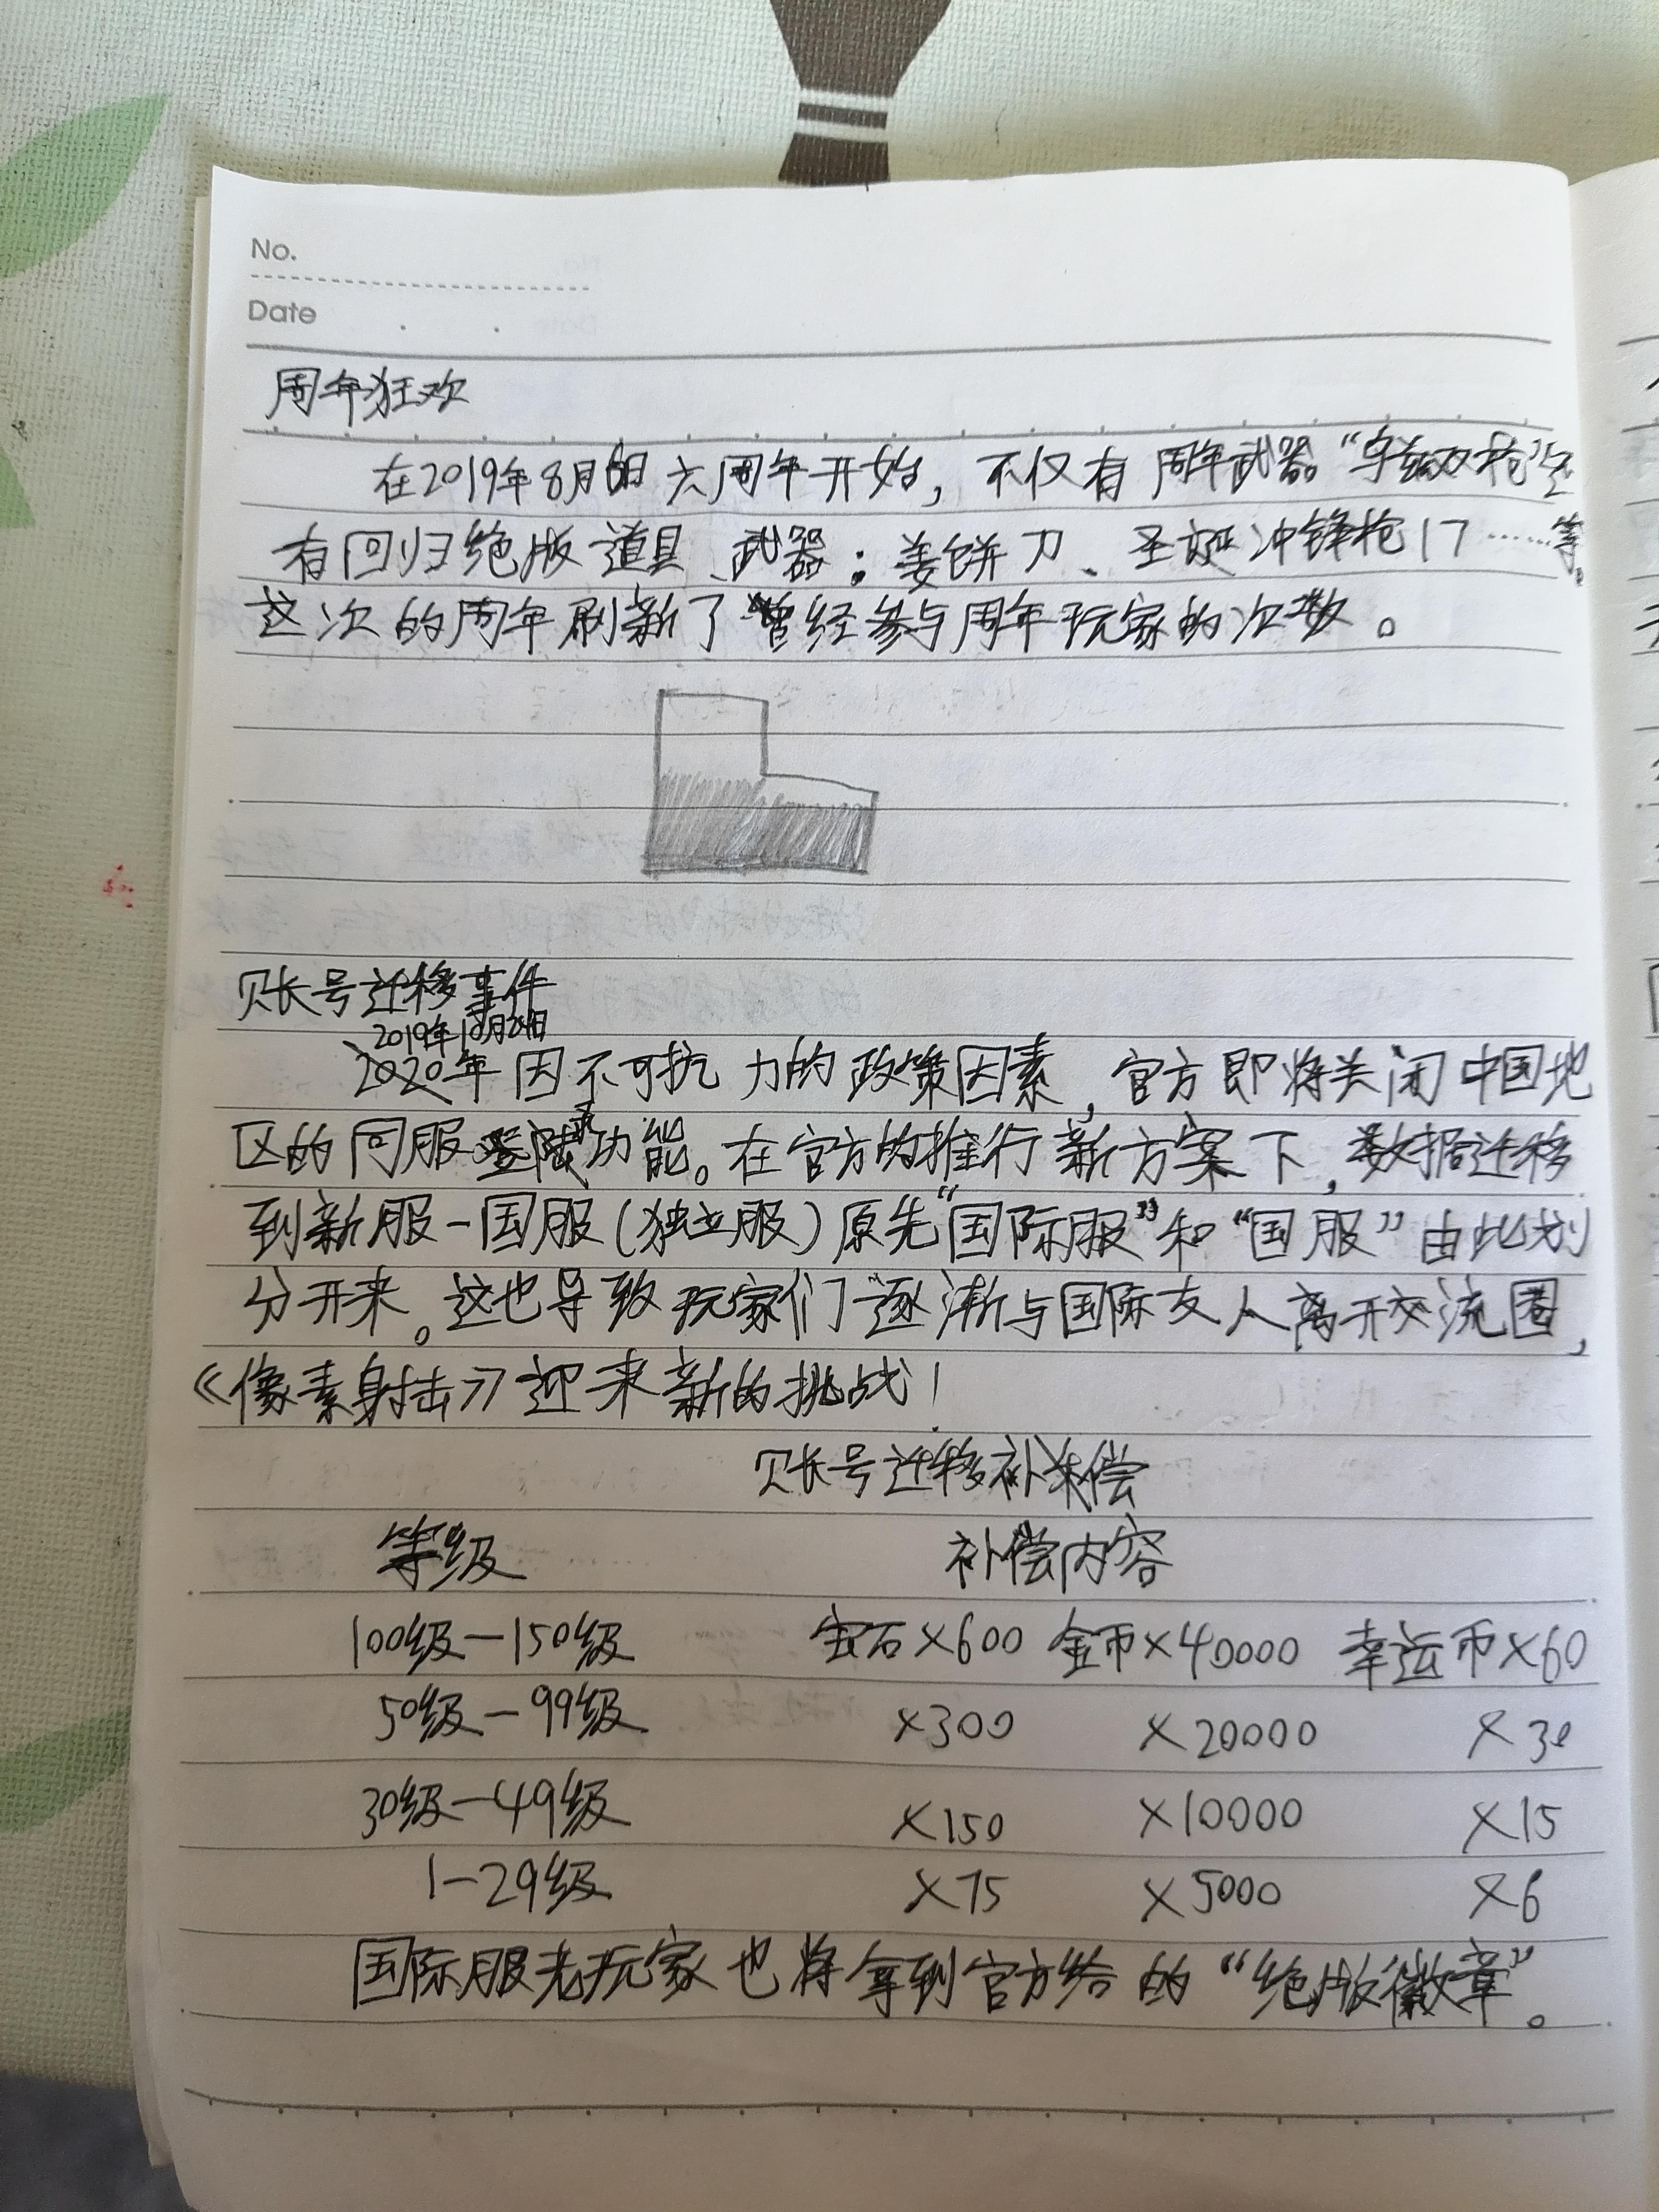 No.
Date
周年狂欢
在2019年8月 六周年开始，不仅有 周年武器“ 双枪”还
有回归绝版道具、武器：姜饼刀、圣诞冲锋枪17……等。
这次的周年刷新了曾经参与周年玩家的次数。
账号迁移事件
2019年10月 日
2020年因不可抗力的政策因素，官方即将关闭中国地
区的同服登录功能。在官方的推行新方案下，数据迁移
到新服-国服(独立服)原先“国际服”和“国服”由此划
分开来。这也导致玩家们逐渐与国际友人离开交流圈，
《像素射击》迎来新的挑战！
账号迁移补偿
等级 补偿内容
100级—150级 宝石×600 金币×40000 幸运币×60
50级—99级 ×300 ×20000 ×30
30级—49级 ×150 ×10000 ×15
1-29级 ×75 ×5000 ×6
国际服老玩家也将拿到官方给的“绝版徽章”。